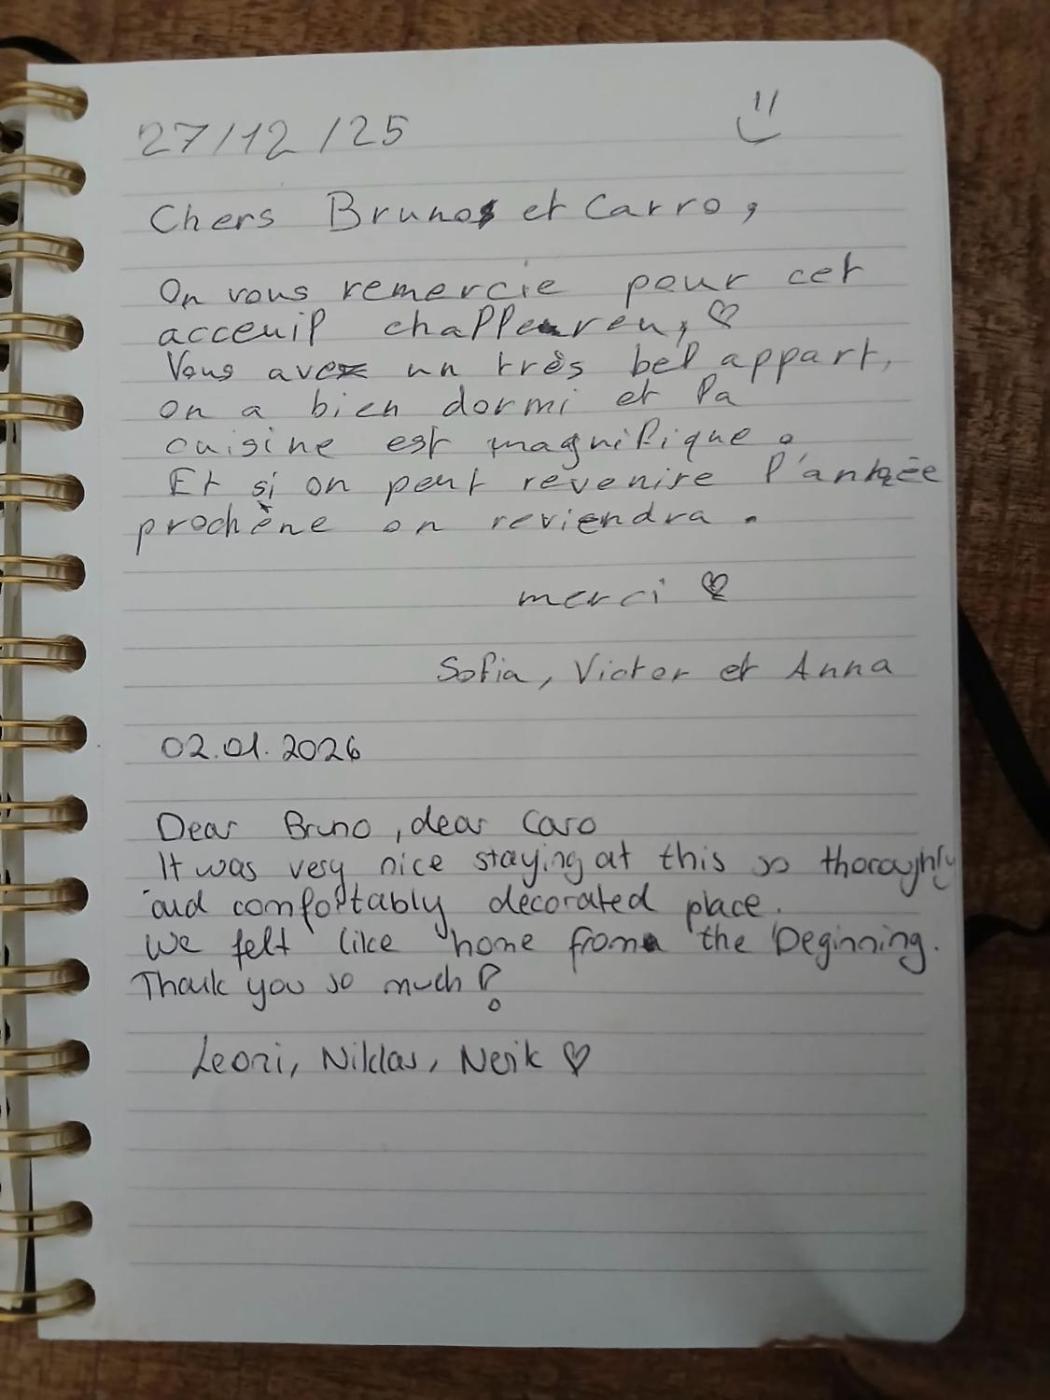 27/12/25
Chers Bruno et Carro,
On vous remercie pour cet
acceuil challeureu, ♡
Vous avez un très bel appart,
on a bien dormi et la
cuisine est magnifique.
Et si on peut revenire l'année
prochène on reviendra.
merci ♡
Sofia, Victor et Anna
02.01.2026
Dear Bruno, dear Caro
It was very nice staying at this so thoroughly
and comfortably decorated place.
We felt like home from the beginning.
Thank you so much!
Leoni, Niklas, Nerik ♡